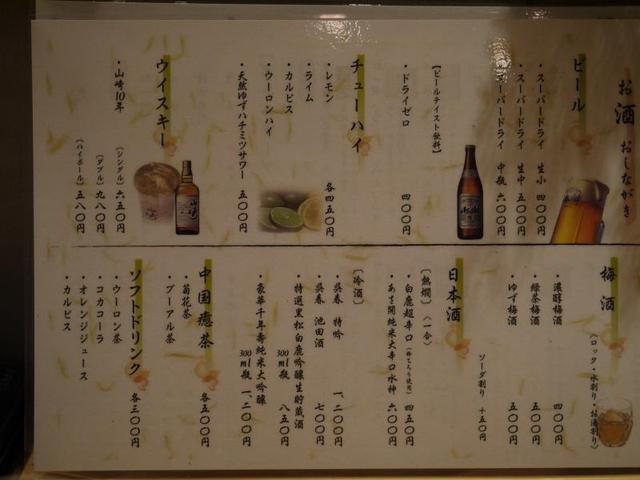 お酒 おしながき
ビール
・スーパードライ 生小 四〇〇円
・スーパードライ 生中 五〇〇円
スーパードライ 中瓶 六〇〇円
【ビールテイスト飲料】
・ドライゼロ 四〇〇円
チューハイ
・レモン 各四五〇円
・ライム
・カルピス
・ウーロンハイ
・天然ゆずハチミツサワー 五〇〇円
ウイスキー
・山崎10年
(シングル) 六五〇円
(ダブル) 九八〇円
(ハイボール) 五八〇円
梅酒
(ロック・水割り・お湯割り)
・濃醇梅酒 四〇〇円
・緑茶梅酒 五〇〇円
・ゆず梅酒 五〇〇円
ソーダ割り +五〇円
日本酒
【熱燗】 (一合)
・白鹿超辛口 四五〇円
・あさ開純米大辛口水神 六〇〇円
【冷酒】
・呉春 特吟 一、二〇〇円
・呉春 池田酒 七〇〇円
・特選黒松白鹿吟醸生貯蔵酒
300ml瓶 八五〇円
・豪華千年寿純米大吟醸
300ml瓶 一、二〇〇円
中国癒茶 各五〇〇円
・菊花茶
・プーアル茶
ソフトドリンク 各三〇〇円
・ウーロン茶
・コカコーラ
・オレンジジュース
・カルピス